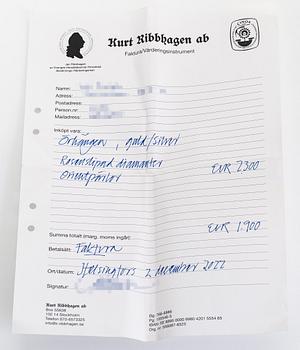 Kurt Ribbhagen ab
Faktura/Värderingsinstrument
Namn:
Adress:
Postadress:
Person.nr:
Mailadress:
Inköpt vara:
Örhängen, guld/silver
Rosenslipad diamanter EUR 2300
Orientpärlor
EUR 1.900
Summa totalt (marg. moms ingår):
Betalsätt: Faktura
Ort/datum: Helsingfors 2 december 2022
Signatur:
Kurt Ribbhagen ab
Box 55638
102 14 Stockholm